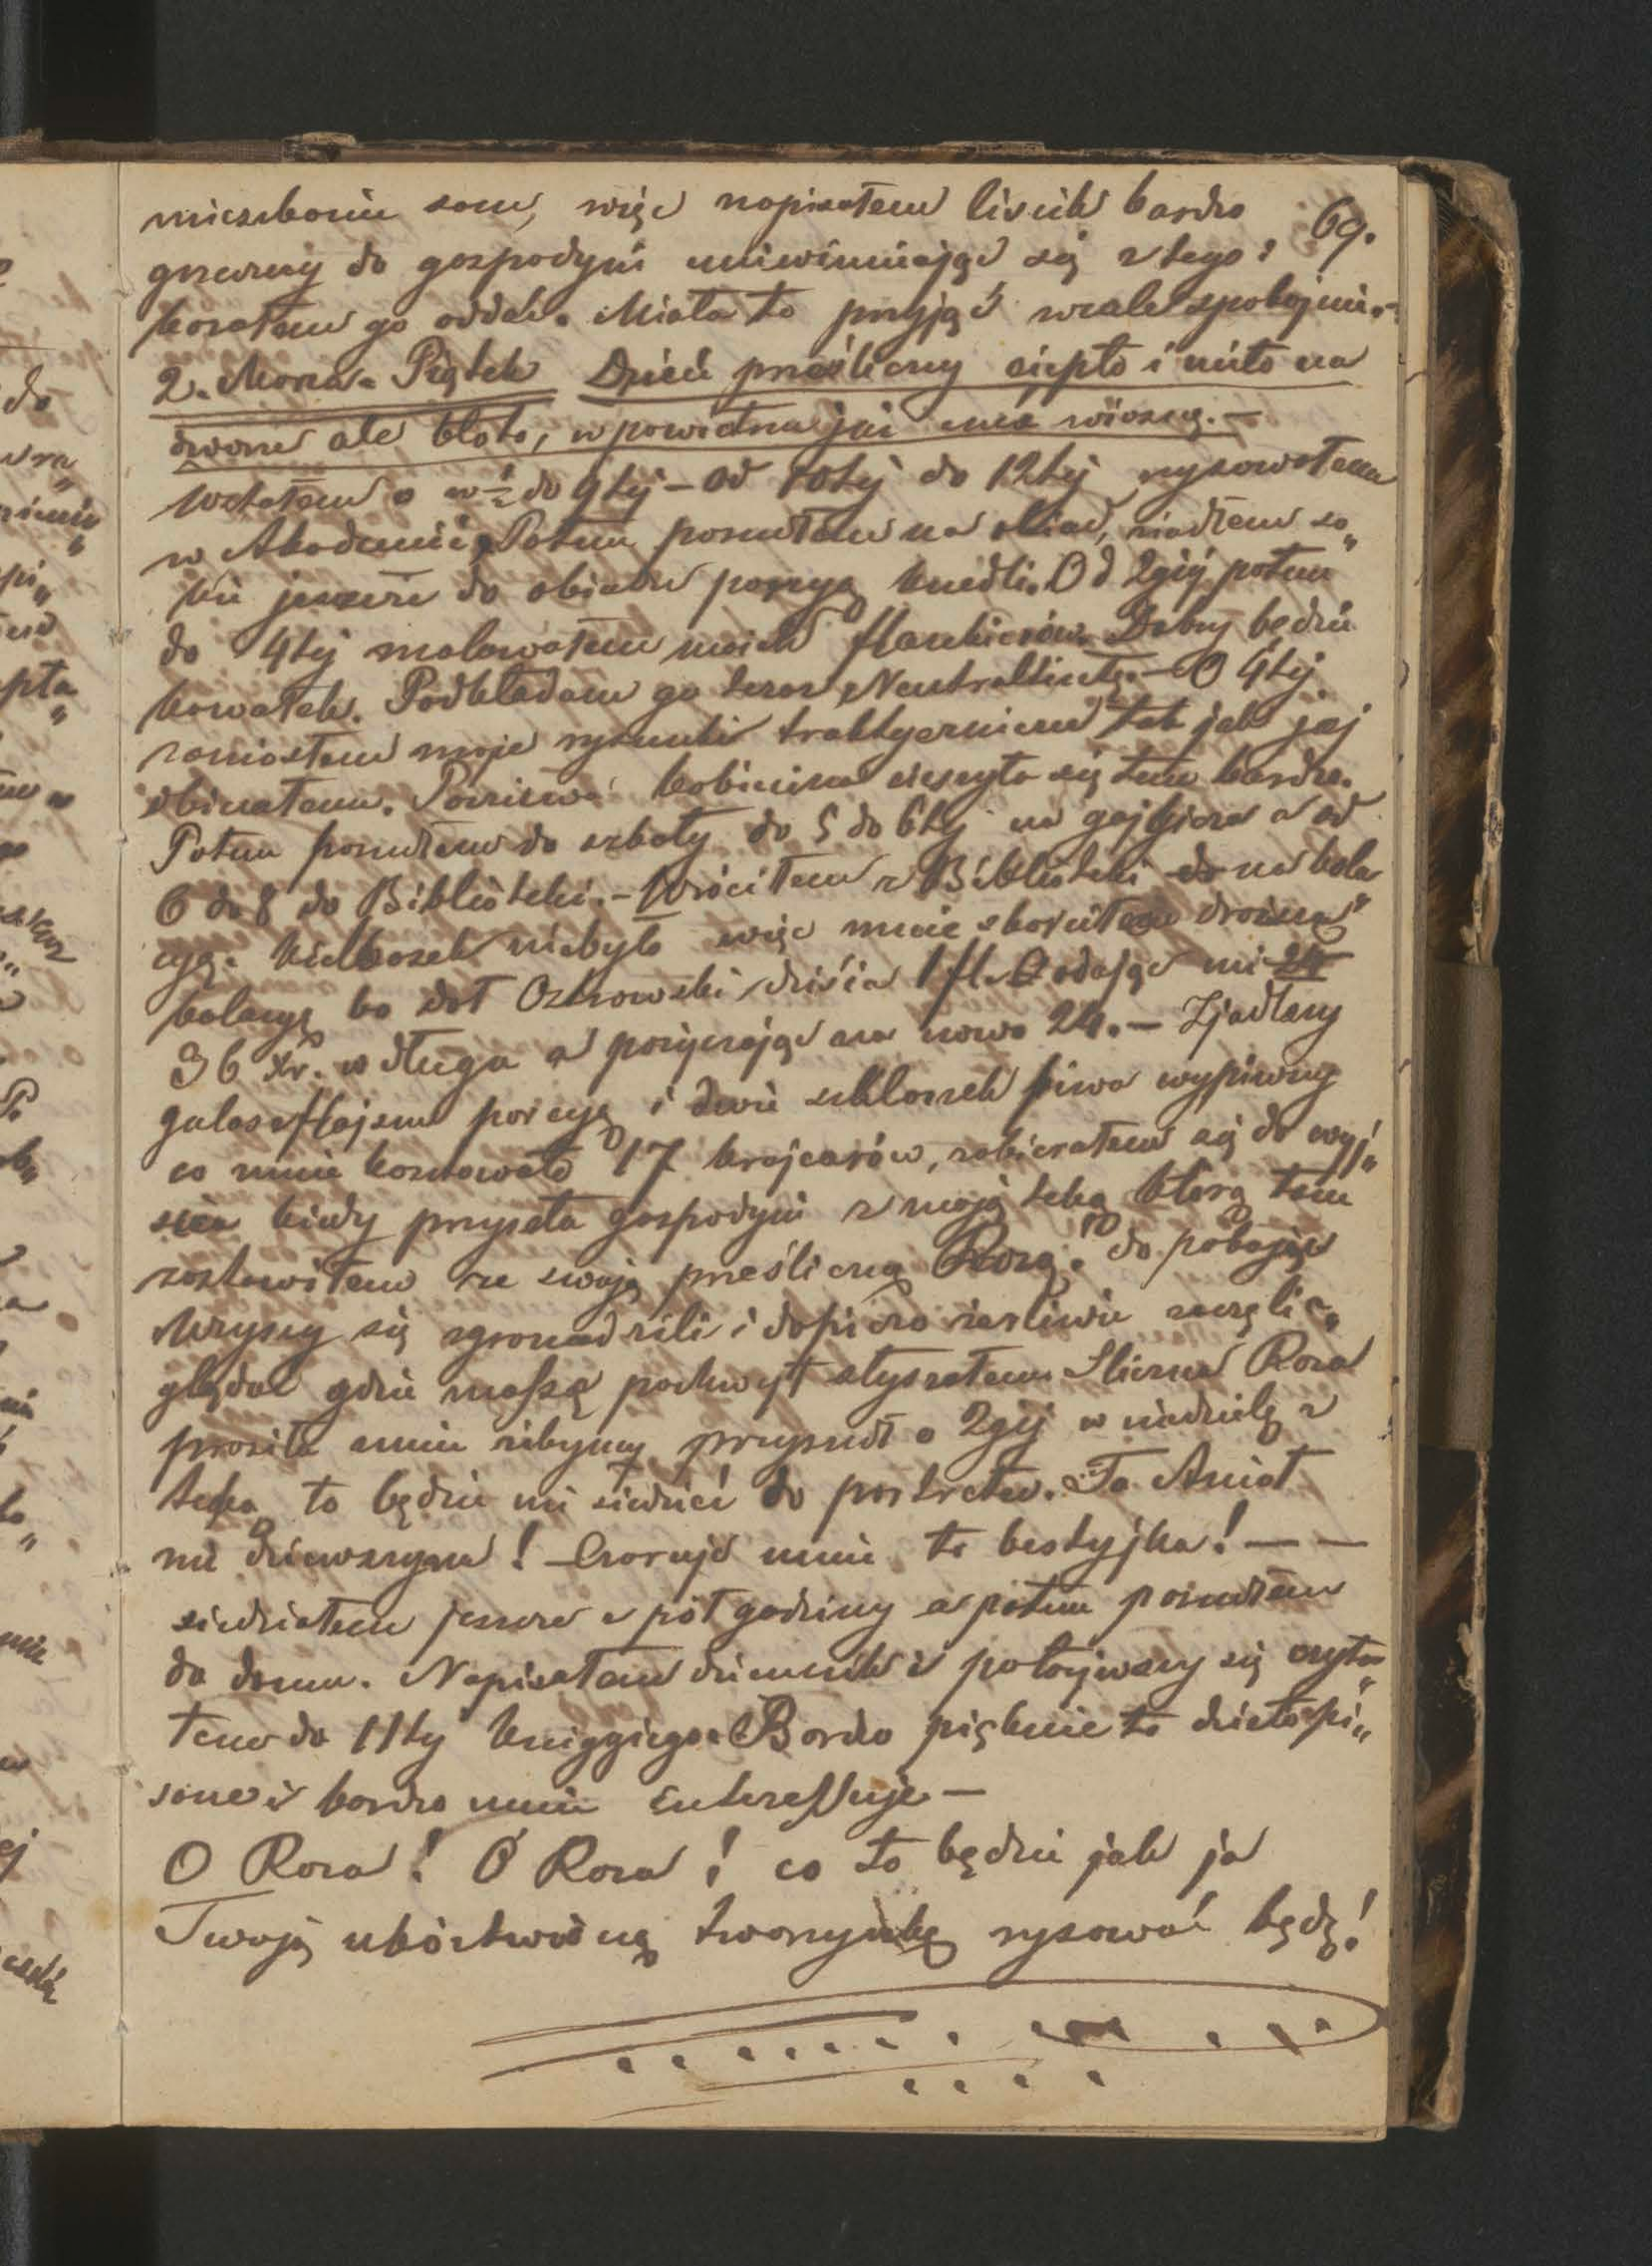 mieszkaniu sam, więc napisałem liścik bardzo
69.
grzeczny do gospodyni uniewinniając się z tego i
kazałem go oddać. Miała to przyjąć wcale spokojnie.-
2. Marca. Piątek Dzień prześliczny ciepło i miło na
dworze ale błoto, w powietrzu już czuć wiosnę.-
Wstałem o w ½ do 9tej - Od 10tej do 12tej rysowałem
w Akademii. Potem poszedłem na obiad, zjadłem so„
bie jeszcze do obiadu porcyę knedli. Od 2giej potem
do 4tej malowałem moich flankierów. Dobry będzie
kawałek. Podkładam go teraz Neutraltintą.- O 4tej
zaniosłem moje rysunki traktyerniczce tak jak jej
obiecałem. Poczciwa kobiecina cieszyła się tem bardzo.
Potem poszedłem do szkoły do 5 do 6tej na gajgiera a od
6 do 8 do Biblioteki.- Wróciłem z Biblioteki do na kola„
cyę. Kiełbasek niebyło więc mnie skończyłem droższą
kolacyę bo dał Ostrowski dzisia 1 fl. Oddając mi 24
36 xr. z długu a pożyczając na nowo 24.- Zjadłszy
gulaszflajszu porcyę i dwie szklanek piwa wypiwszy
co mnie kosztowało 17 krajcarów, zabierałem się do wyj„
ścia kiedy przyszła gospodyni z moją teką którą tam
zostawiłem ze swoją prześliczną Rozą. do pokoju
Wszyscy się zgromadzili i dopiero żarliwie zaczęli o„
glądać gdzie masę pochwył słyszałem. Śliczna Roza
prosiła mnie żebym przyszedł o 2giej w niedzielę z
teką to będzie mi siedzieć do portretu. To Anioł
nie dziewczyna! Czaruje mnie ta bestyjka! - -
siedziałem jeszcze z pół godziny a potem poszedłem
do domu. Napisałem dziennik i położywszy się czyta„
łem do 11tej Kniggiego. Bardzo pięknie to dzieło pi„
sane i bardzo mnie interessuje -
O Roza! O Roza! co to będzie jak ja
Twoją ubóstwioną twarzyczkę rysować będę!